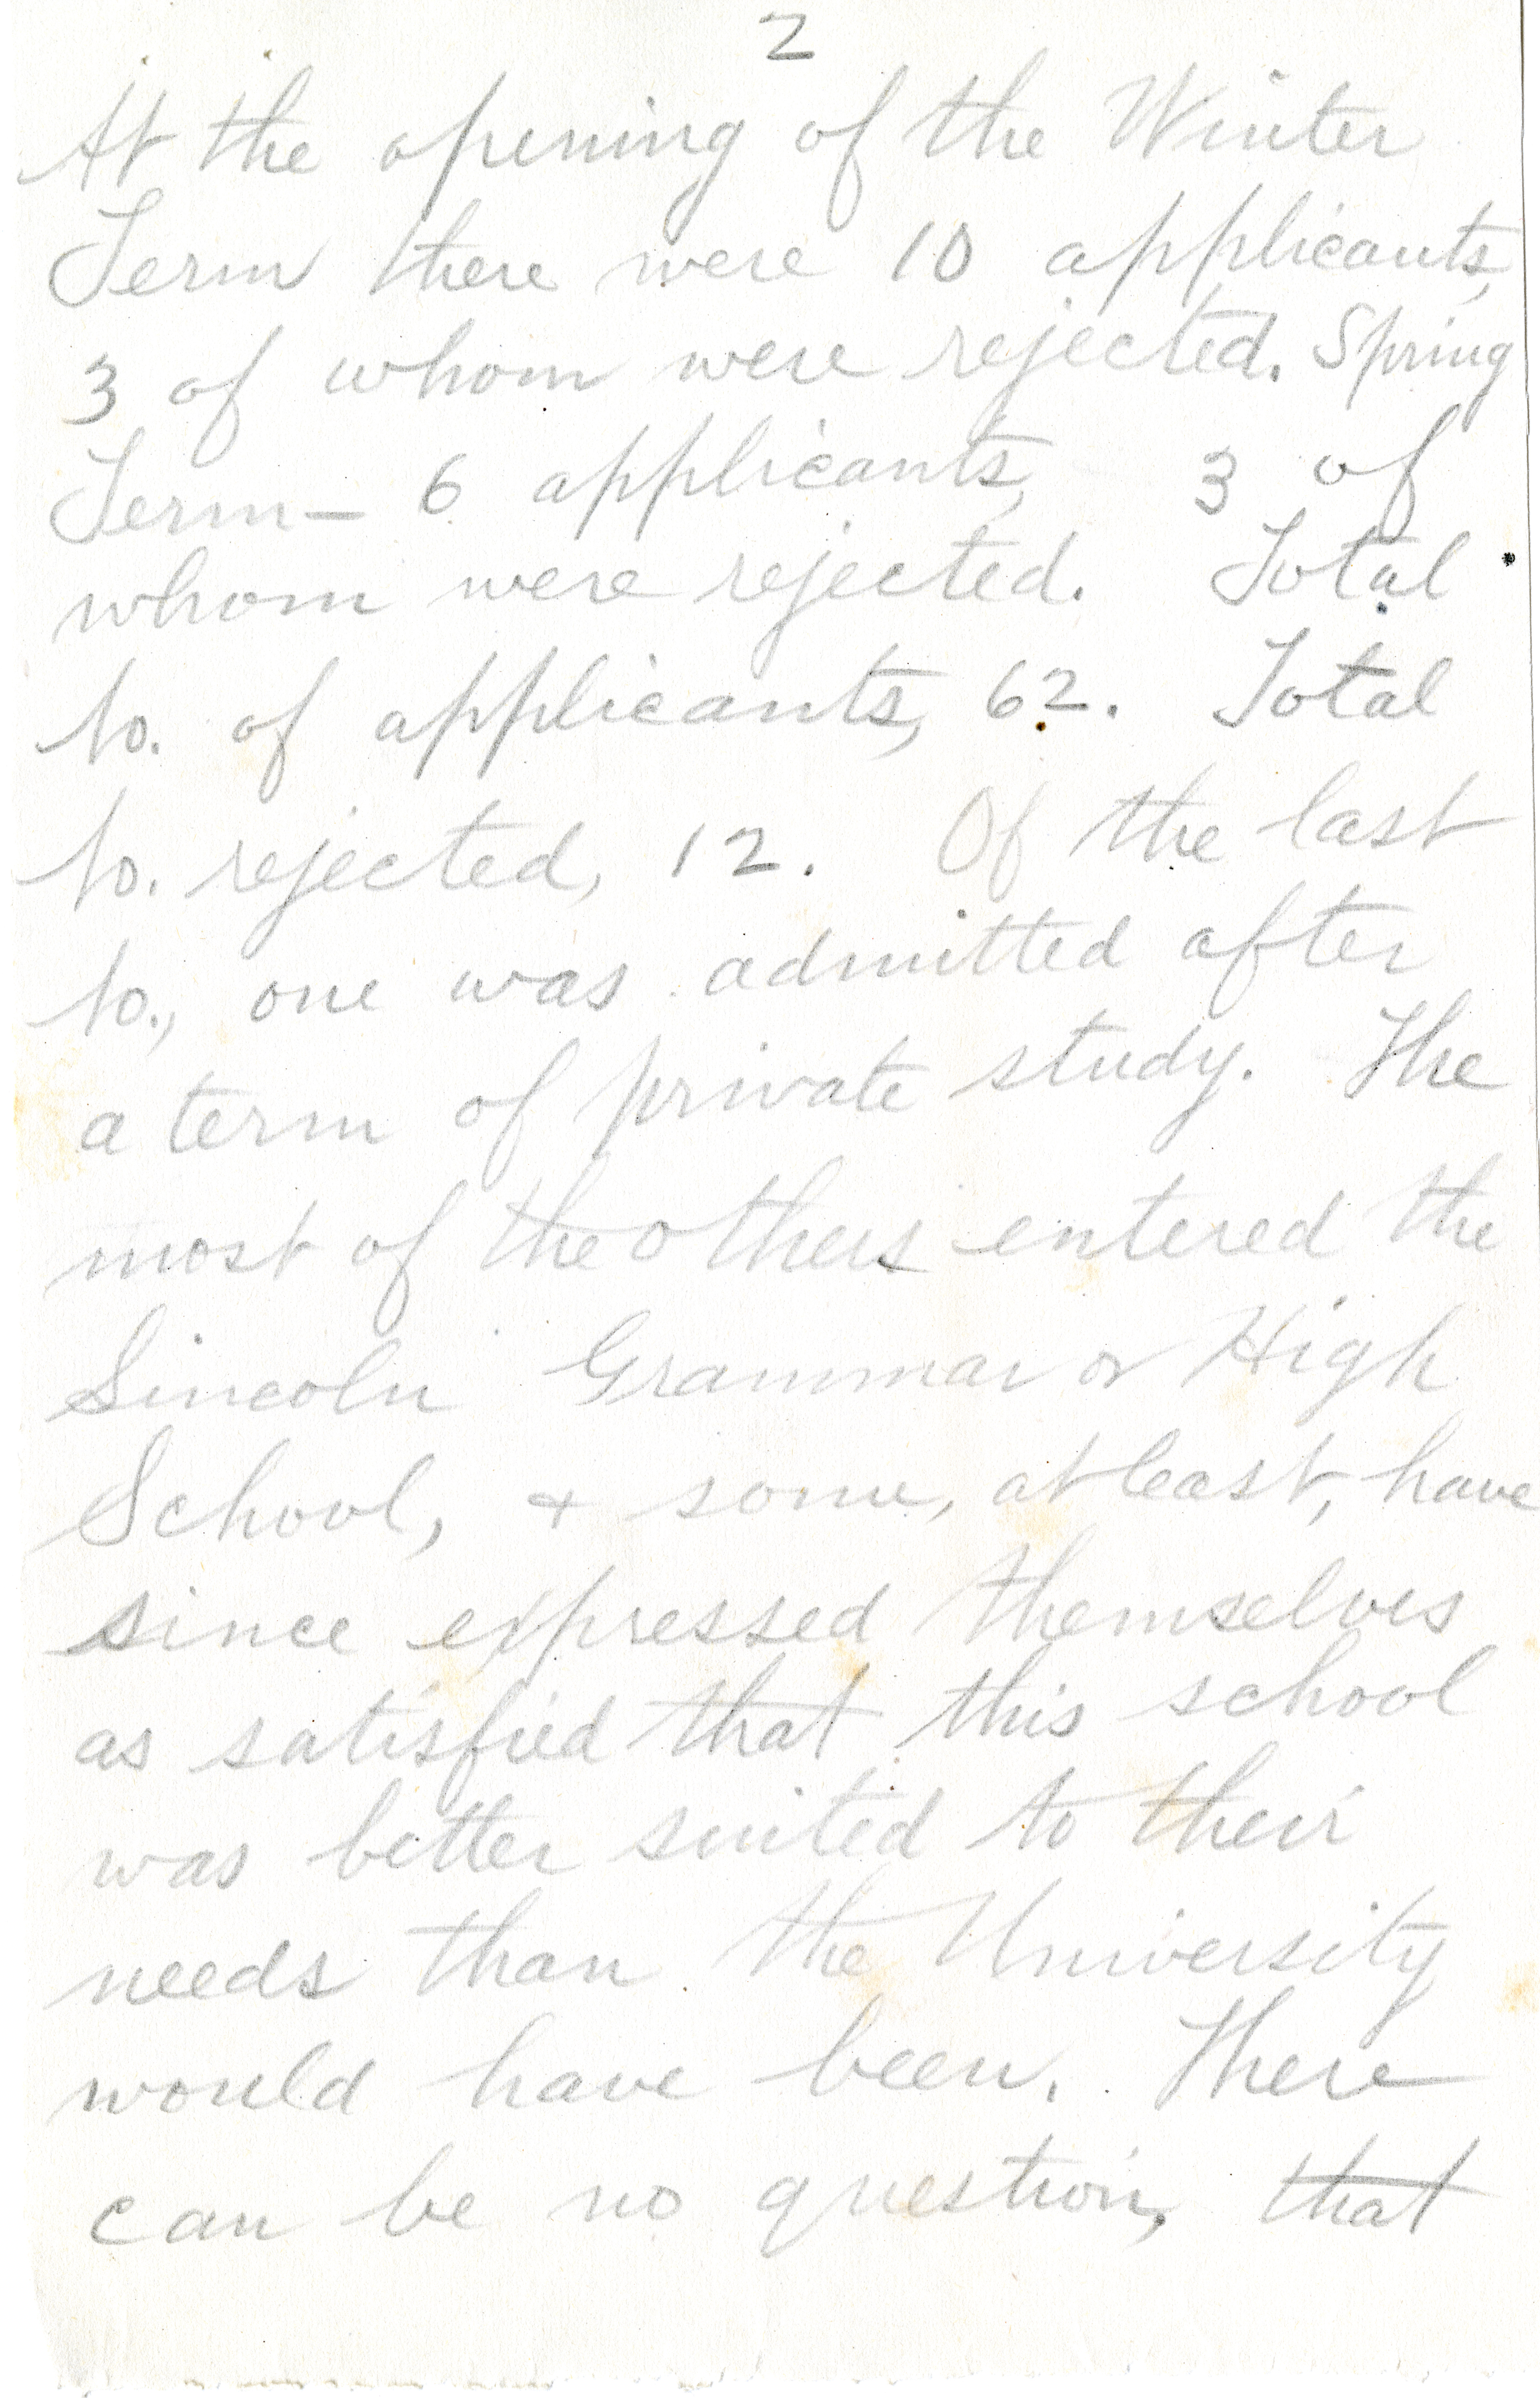 2
At the opening of the Winter
Term there were 10 applicants,
3 of whom were rejected. Spring
Term – 6 applicants, 3 of
whom were rejected. Total
No. of applicants, 62. Total
No. rejected, 12. Of the last
No., one was admitted after
a term of private study. The
most of the others entered the
Lincoln Grammar or High
School, & some, at least, have
since expressed themselves
as satisfied that this school
was better suited to their
needs than the University
would have been. There
can be no question, that